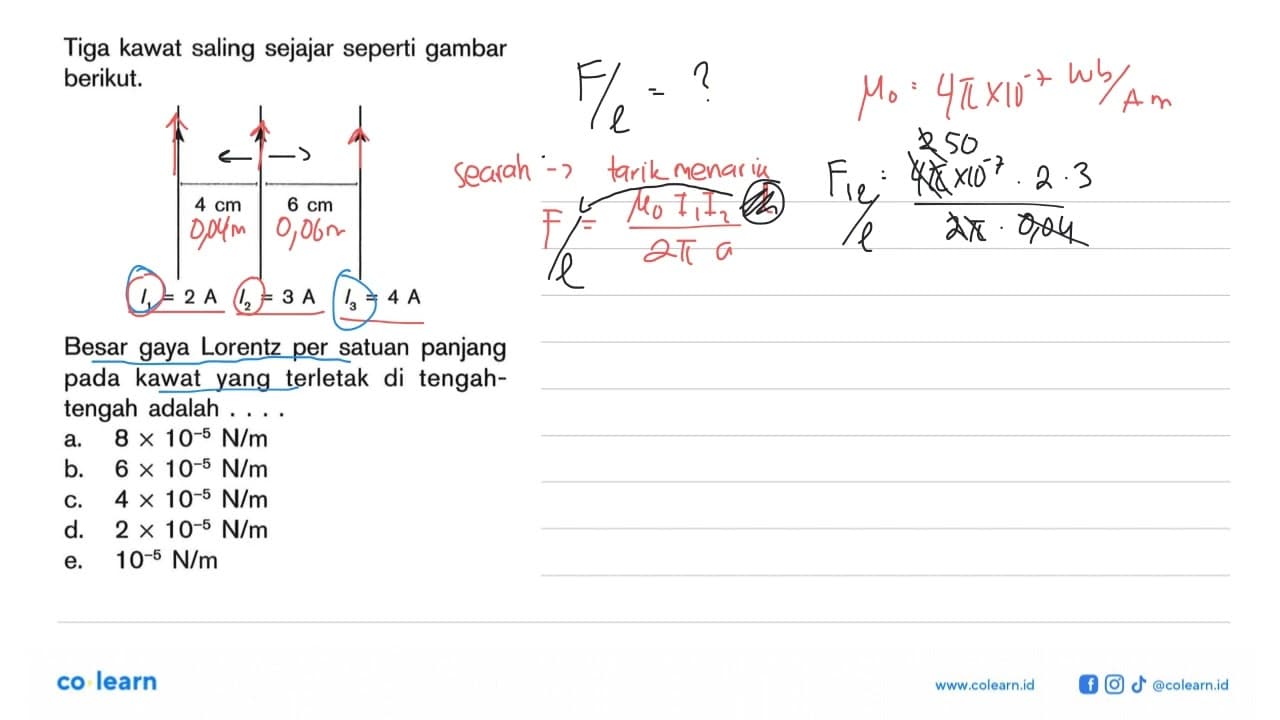 Tiga kawat saling sejajar seperti gambar
berikut.
4 cm 6 cm
0,04m 0,06m
I₁ = 2 A I₂ = 3 A I₃ = 4 A
Besar gaya Lorentz per satuan panjang
pada kawat yang terletak di tengah-
tengah adalah . . . .
a. 8 × 10⁻⁵ N/m
b. 6 × 10⁻⁵ N/m
c. 4 × 10⁻⁵ N/m
d. 2 × 10⁻⁵ N/m
e. 10⁻⁵ N/m
F/l = ?
μ₀ = 4π×10⁻⁷ Wb/Am
searah -> tarik menarik
F/l = μ₀ I₁ I₂ / 2π a
250
F₁₂/l = 4π×10⁻⁷ . 2 . 3 / 2π . 0,04
co learn
www.colearn.id
@colearn.id